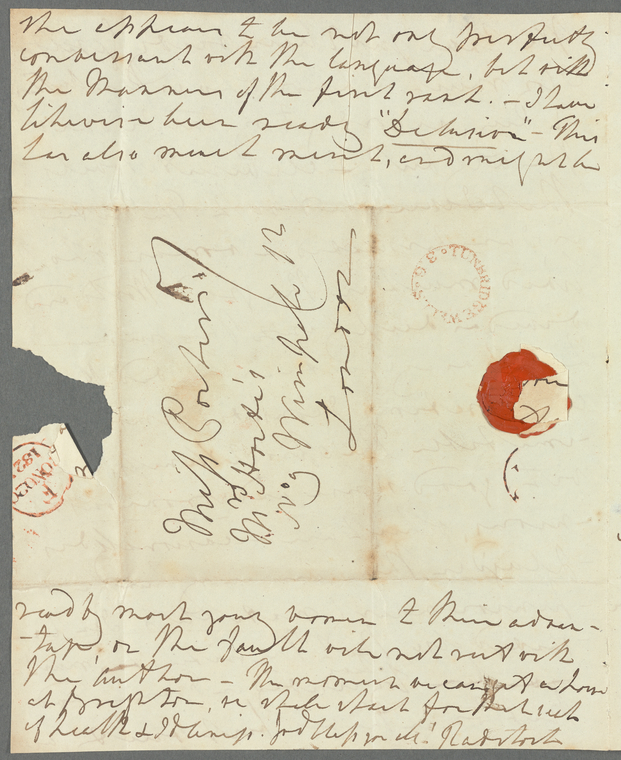 she appears to be not only perfectly
conversant with the language, but with
the Manners of the first rank. – I have
likewise been reading "Delusion" – This
has also much merit, and might be
Miss Porter
Mrs Hoste's
No 9 Wimpole
London
TUNBRIDGE WELLS
read by most young women to their advan-
-tage, or the fault will not rest with
the author – The moment we can get a house
at Brighton, we shall start for that
of health & God bless you all! Radstock